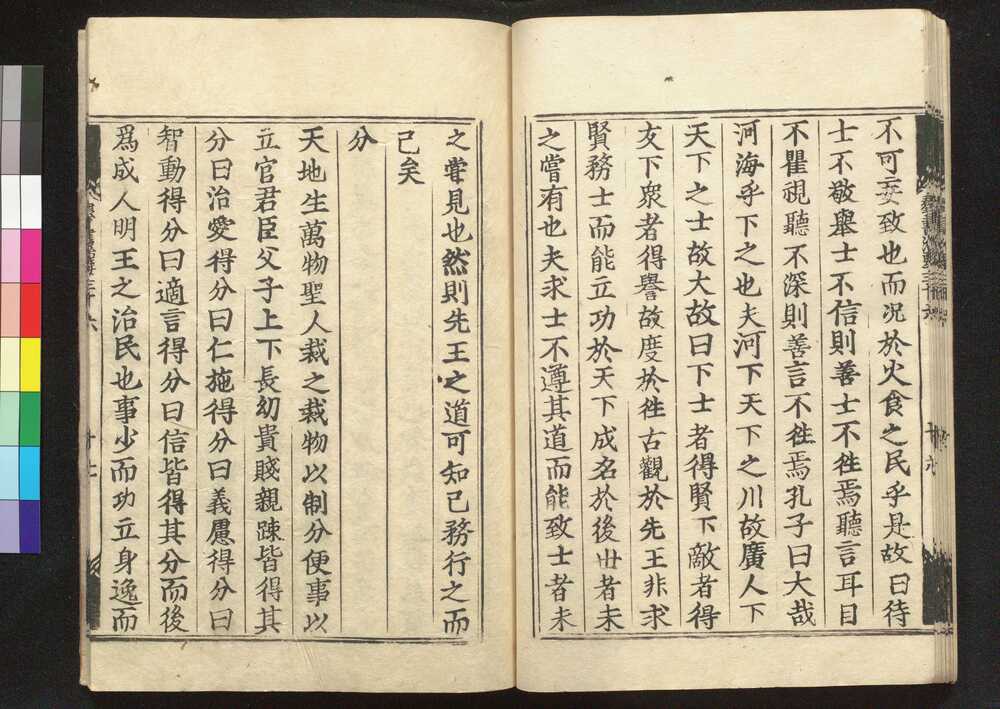 不可妄致也而况於火食之民乎是故曰待
士不敬舉士不信則善士不徃焉聽言耳目
不瞿視聽不深則善言不徃焉孔子曰大哉
河海乎下之也夫河下天下之川故廣人下
天下之士故大故曰下士者得賢下敵者得
友下衆者得譽故度於徃古觀於先王非求
賢務士而能立功於天下成名於後世者未
之嘗有也夫求士不遵其道而能致士者未
之嘗見也然則先王之道可知已務行之而
已矣
分
天地生萬物聖人裁之裁物以制分便事以
立官君臣父子上下長幼貴賤親踈皆得其
分曰治愛得分曰仁施得分曰義慮得分曰
智動得分曰適言得分曰信皆得其分而後
爲成人明王之治民也事少而功立身逸而